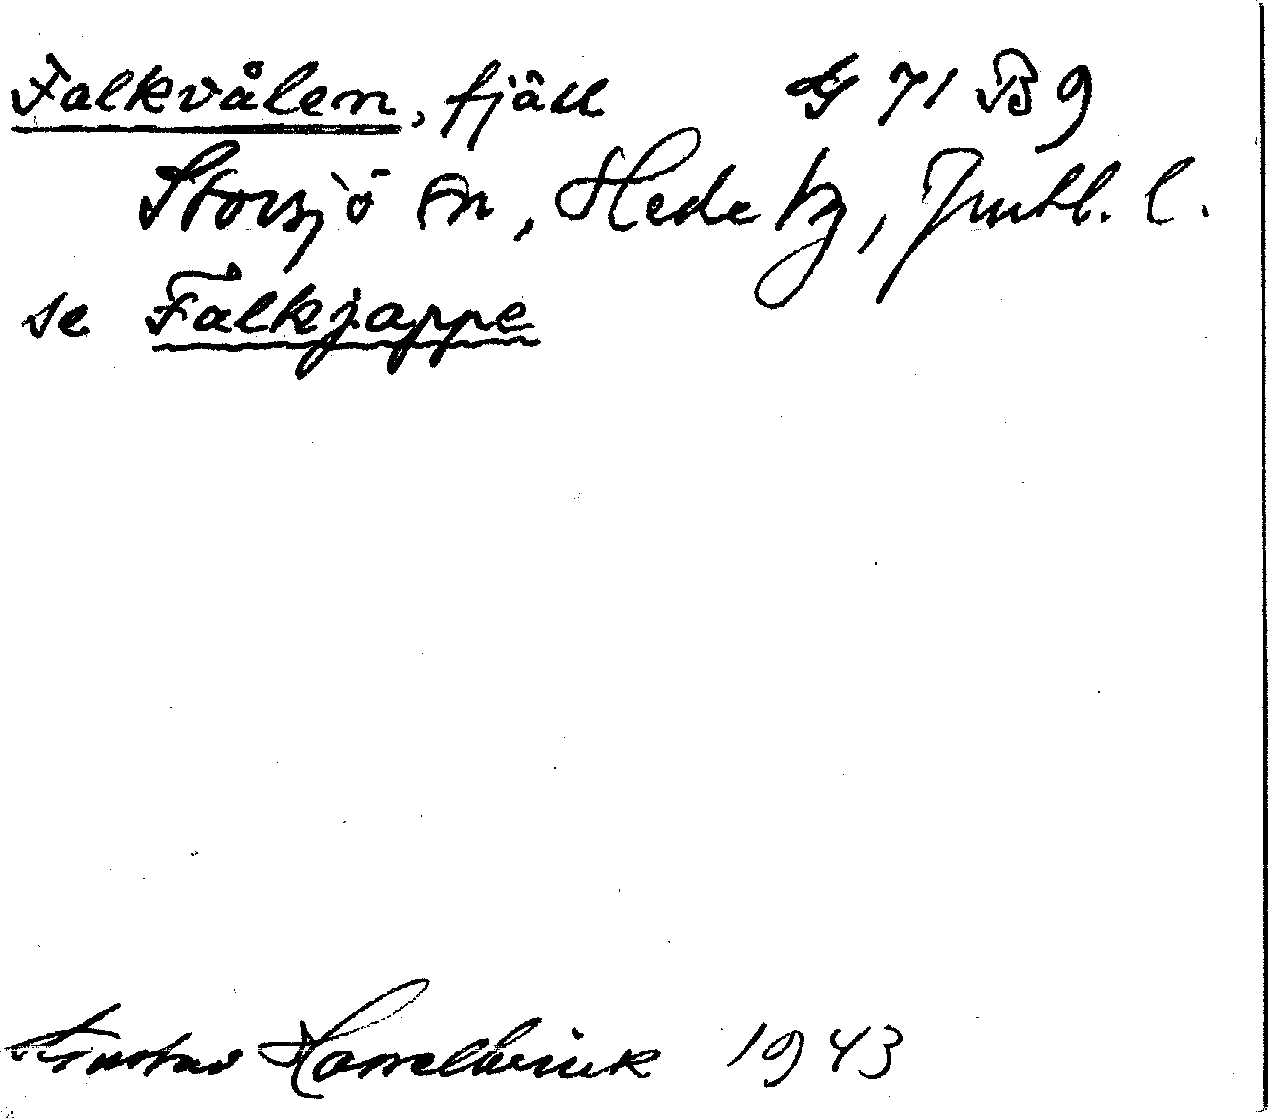 Falkvålen, fjäll G 71 B 9
Storsjö sn, Hede tg, Jmtl. l.
se Falkjappe
Gustav Hasselbrink 1943